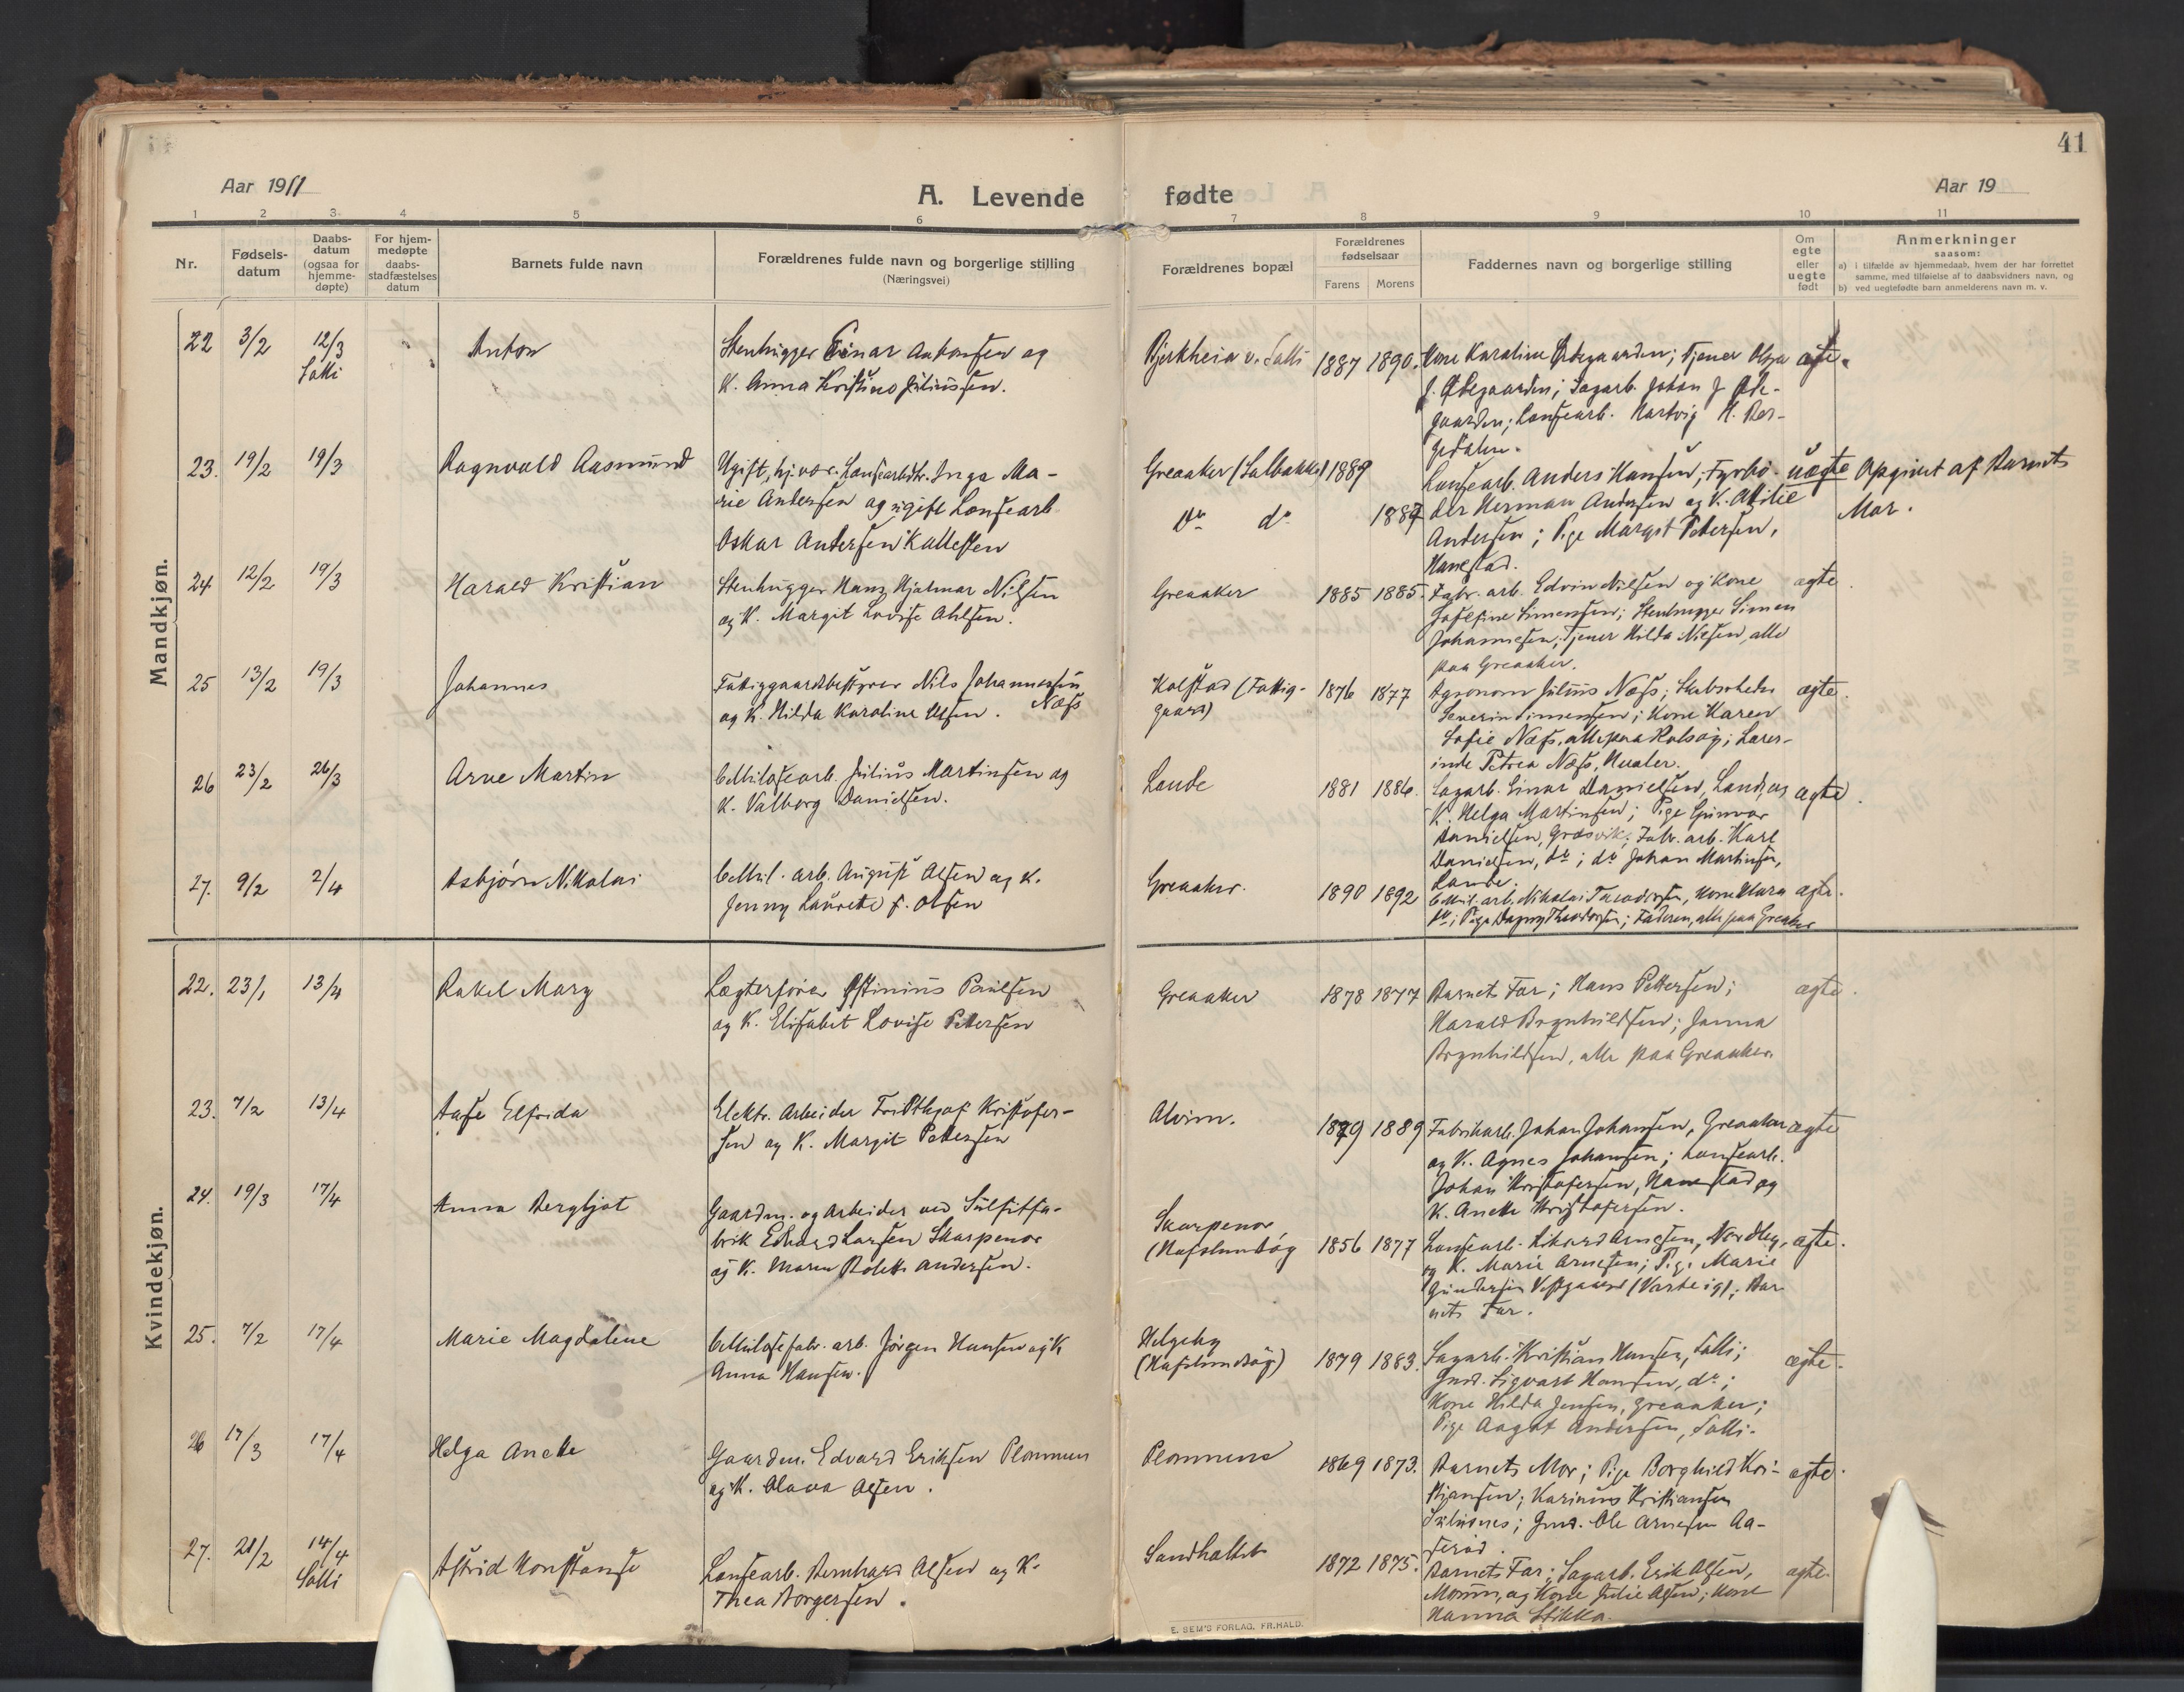 41
Aar 1911
A. Levende fødte
Aar 19
1 2 3 4 5 6 7 8 9 10 11
Nr.
Fødsels-
datum
Daabs-
datum
(ogsaa for
hjemme-
døpte)
For hjem-
medøpte
daabs-
stadfæstelses
datum
Barnets fulde navn
Forældrenes fulde navn og borgerlige stilling
(Næringsvei)
Forældrenes bopæl
Forældrenes
fødselsaar
Farens Morens
Faddernes navn og borgerlige stilling
Om
egte
eller
uegte
født
Anmerkninger
saasom:
a) i tilfælde av hjemmedaab, hvem der har forrettet
samme, med tilføielse af to daabsvidners navn, og
b) ved uegtefødte barn anmelderens navn m. v.
Mandkjøn.
22 3/2 12/3 Anton Stenhugger Einar Antonsen og Bjerkheia v. Solli 1887 1890. Kone Karoline Ødegaarden; Tjener Olga ægte.
Solli K. Anna Kristine Juliussen. J. Ødegaarden; Sagarb. Johan J Øde-
gaarden; Løusearb. Hartvig H.
23. 19/2 19/3 Ragnvald Aasmund Ugift, hj.vær. Inga Ma- Greaaker (Solbakke) 1889 Løusearb. Anders Hansen, Fyrbø- uægte Opgivet af Barnets
rie Andersen og ugift Løusearb. Do do 1887 der Herman Andersen og K. Otilie Mor.
Oskar Andersen Kallesten Andersen; Pige Margit Pettersen,
Hanestad.
24 12/2 19/3 Harald Kristian Stenhugger Hans Hjalmar Nilsen Greaaker 1885 1885. Fabr. arb. Edvin Nilsen og Kone ægte.
og K. Margit Lovise Ohlsen. Josefine Simensen; Stenhugger Simen
Johannesen; Tjener Hilda Nilsen, alle
paa Greaaker.
25 13/2 19/3 Johannes Fattiggaardbestyrer Nils Johannessen Kolstad (Fattig- 1876 1877 Agronom Julius Næss; ægte.
og K. Hilda Karoline Olsen. Næss gaard) Severin Simensen; Kone Karen
Sofie Næss, alle paa ; Lærer-
inde Petrea Næss, Hvaler.
26 23/2 26/3 Arne Martin Cellulosearb. Julius Martinsen og Lande 1881 1886. Sagarb. Einar Danielsen, Lande, og ægte.
K. Valborg Danielsen. K. Helga Martinsen; Pige Gunvor
Danielsen, Græsvik; Fabr. arb. Karl
Danielsen, do; do Johan Martinsen,
Lande.
27. 9/2 2/4 Asbjørn Nikolai Cellul. arb. August Olsen og K. Greaaker. 1890 1892 Cellul. arb. Nikolai Theodorsen, Kone Klara ægte.
Jenny Laurete f. Olsen do; Pige Dagny Theodorsen; Faderen, alle paa Greaaker
Kvindekjøn.
22. 23/1 13/4 Rakel Mary Lægterfører Østinius Paulsen Greaaker 1878 1877 Barnets Far; Hans Pettersen; ægte.
og K. Elisabet Lovise Pettersen Harald Brynhildsen; Janna
Brynhildsen, alle paa Greaaker.
23. 7/2 13/4 Aase Elfrida Elektr. Arbeider Fridthjof Kristofer- Alvim. 1889 1889 Fabrikarb. Johan Johansen, Greaaker ægte
sen og K. Margit Pettersen og K. Agnes Johansen; Løusearb.
Johan Kristofersen, Hanestad og
K. Anette Kristofersen.
24. 19/3 17/4 Anna Bergljot Gaardm. og Arbeider ved Sulfitfa- Skarpenor
brik Edvard Larsen Skarpenor (Hafslundsøg 1856 1877 Løusearb. Rikard Arnesen, Nordby, ægte.
og K. Maren Bolette Andersen. og K. Marie Arnesen; Pige Marie
Gundersen Vestgaard (Varteig); Bar-
nets Far.
25. 7/2 17/4 Marie Magdalene Cellulosefabr. arb. Jørgen Hansen og K Helgeby
Anna Hansen. (Hafslundsøg) 1879 1883. Sagarb. Kristian Hansen, Solli; ægte.
Gmd. Sigvart Hansen, do;
Kone Hilda Jensen, Greaaker;
Pige Aagot Andersen, Solli.
26 17/3 17/4 Helga Anette Gaardm. Edvard Eriksen Plommen Plommene 1869 1873. Barnets Mor; Pige Borghild Kri- ægte.
og K. Olava Olsen. stjansen; Karinius Kristiansen
; Gmd. Ole Arnesen Aa-
serød.
27. 21/2 14/4 Astrid Konstanse Løusearb. Bernhard Olsen og K. Sandbakken 1872 1875. Barnets Far; Sagarb. Erik Olsen, ægte.
Solli Thea Borgersen. Moum, og Kone Julie Olsen; Kone
Hanna Stikka.
E. SEM'S FORLAG, FR.HALD.